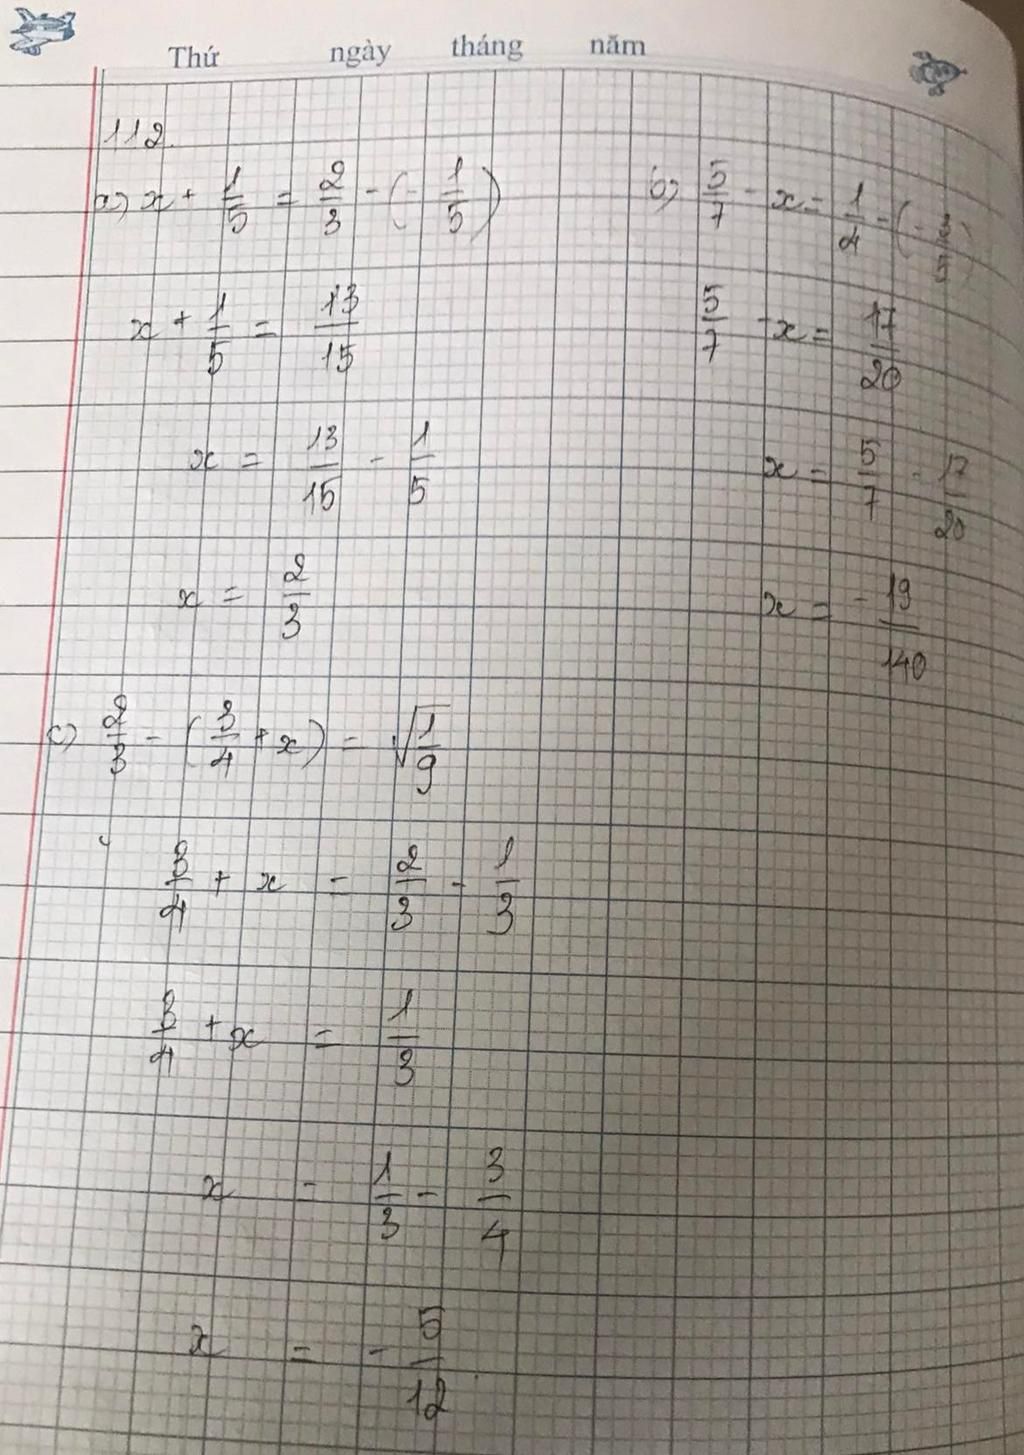 Thứ ngày tháng năm
112.
a) x + 1/5 = 2/3 - (- 1/5)
x + 1/5 = 13/15
x = 13/15 - 1/5
x = 2/3
b) 5/7 - x = 1/4 - (- 3/5)
5/7 - x = 17/20
x = 5/7 - 17/20
x = - 19/140
c) 2/3 - (3/4 + x) = √1/9
3/4 + x = 2/3 - 1/3
3/4 + x = 1/3
x = 1/3 - 3/4
x = - 5/12